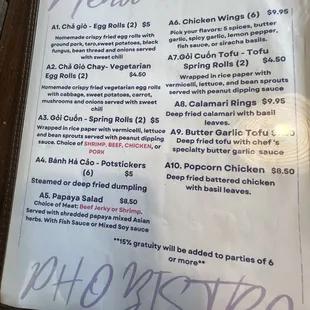 Menu
A1. Chả giò - Egg Rolls (2) $5
Homemade crispy fried egg rolls with
ground pork, taro,sweet potatoes, black
fungus, bean thread and onions served
with sweet chili
A2. Chả Giò Chay- Vegetarian
Egg Rolls (2) $4.50
Homemade crispy fried vegetarian egg rolls
with cabbage, sweet potatoes, carrot,
mushrooms and onions served with sweet
chili
A3. Gỏi Cuốn - Spring Rolls (2) $5
Wrapped in rice paper with vermicelli, lettuce
and bean sprouts served with peanut dipping
sauce. Choice of SHRIMP, BEEF, CHICKEN, or
PORK
A4. Bánh Há Cảo - Potstickers
(6) $5
Steamed or deep fried dumpling
A5. Papaya Salad $8.50
Choice of Meat: Beef Jerky or Shrimp.
Served with shredded papaya mixed Asian
herbs. With Fish Sauce or Mixed Soy sauce
A6. Chicken Wings (6) $9.95
Pick your flavors: 5 spices, butter
garlic, spicy garlic, lemon pepper,
fish sauce, or siracha basils.
A7.Gỏi Cuốn Tofu - Tofu
Spring Rolls (2) $4.50
Wrapped in rice paper with
vermicelli, lettuce, and bean sprouts
served with peanut dipping sauce
A8. Calamari Rings $9.95
Deep fried calamari with basil
leaves.
A9. Butter Garlic Tofu
Deep fried tofu with chef's
specialty butter garlic sauce
A10. Popcorn Chicken $8.50
Deep fried battered chicken
with basil leaves.
**15% gratuity will be added to parties of 6
or more**
PHO BISTRO